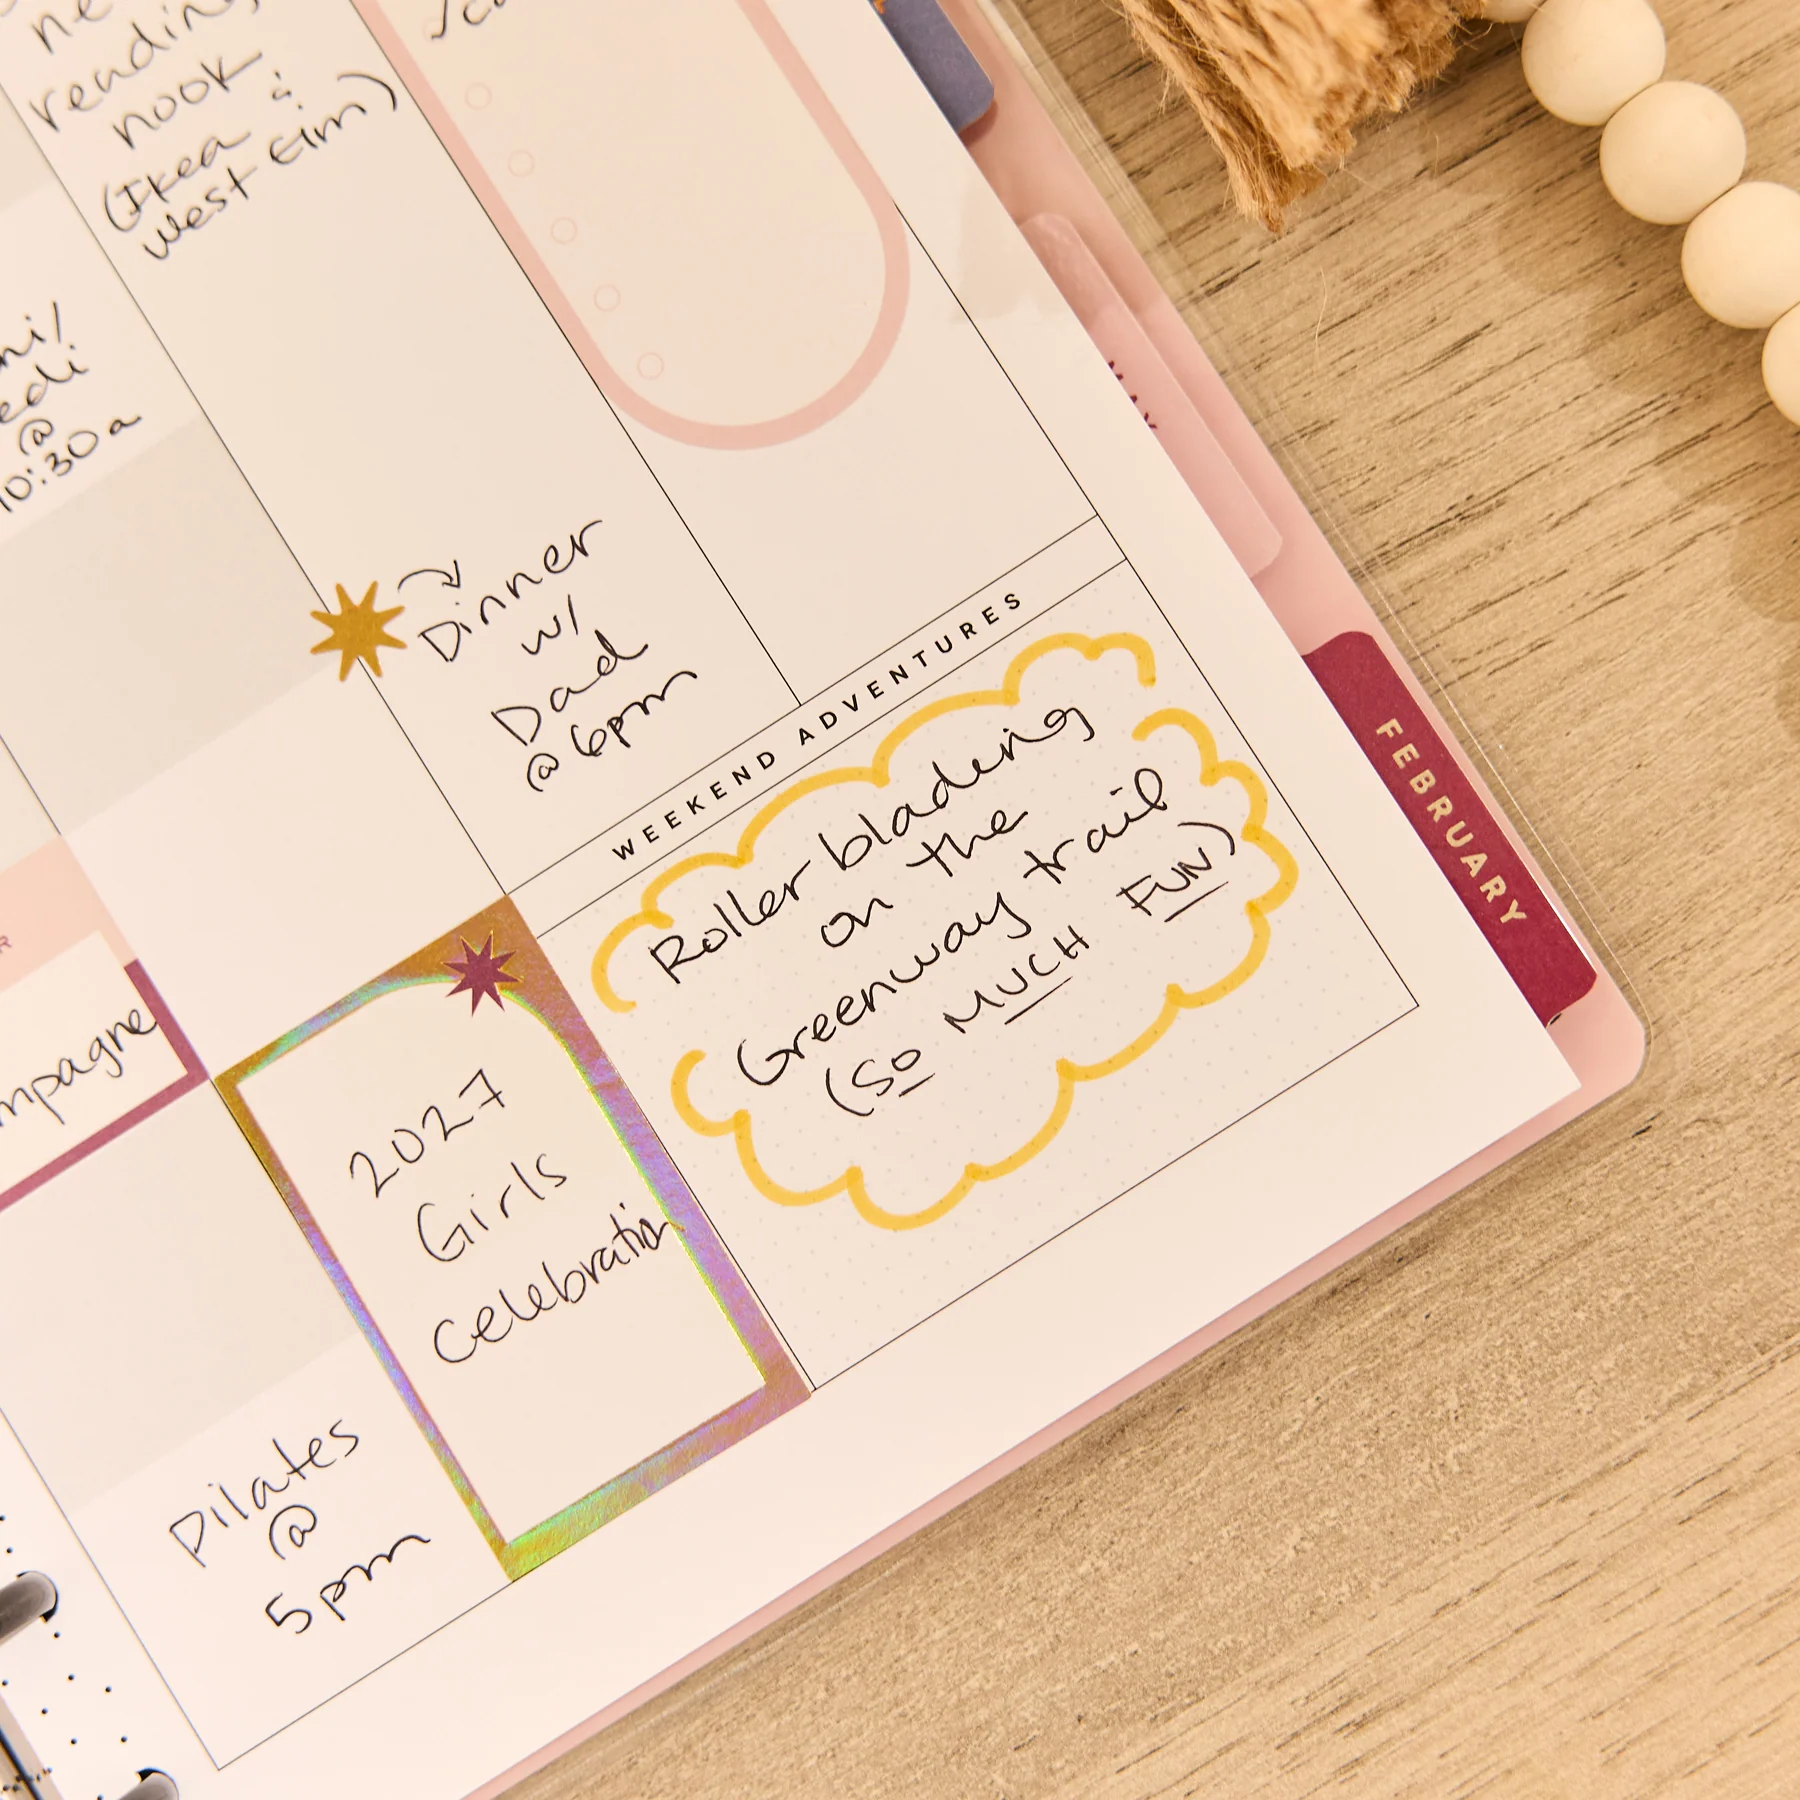 reading
nook
(Ikea &
West Elm)
@
10:30a
Dinner
w/
Dad
@ 6pm
WEEKEND ADVENTURES
Roller blading
on the
Greenway trail
(SO MUCH FUN)
2027
Girls
Celebration
Pilates
@
5pm
FEBRUARY